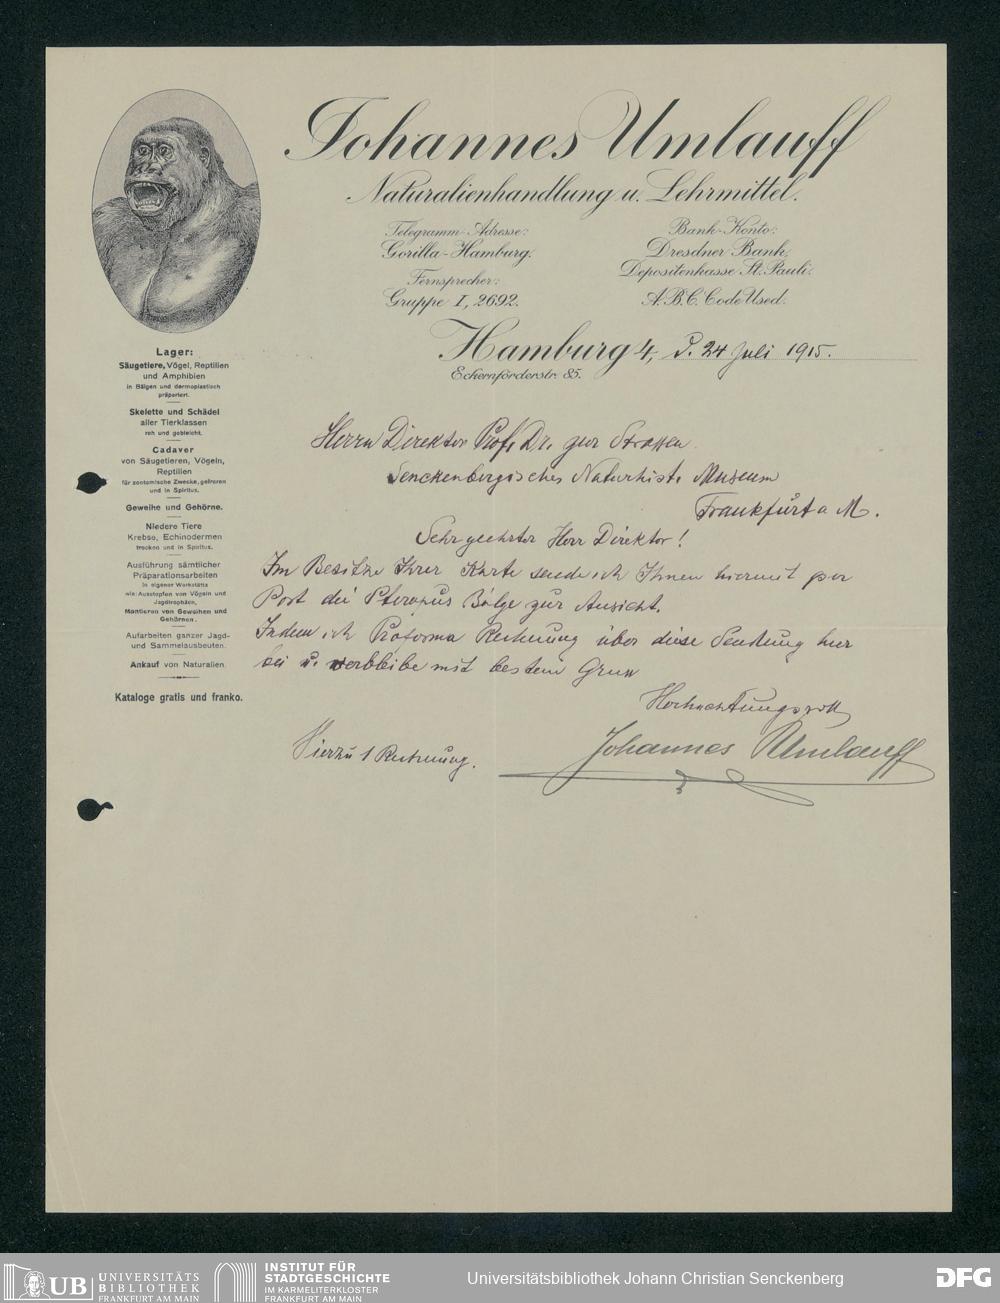 Johannes Umlauff
Naturalienhandlung u. Lehrmittel.
Telegramm-Adresse:
Gorilla-Hamburg.
Fernsprecher:
Gruppe I, 2692.
Bank-Konto:
Dresdner Bank,
Depositenkasse St. Pauli.
A.B.C. Code Used.
Hamburg 4, d. 24 Juli 1915.
Eckernförderstr. 85.
Lager:
Säugetiere, Vögel, Reptilien
und Amphibien
in Bälgen und dermoplastisch
präpariert.
Skelette und Schädel
aller Tierklassen
roh und gebleicht.
Cadaver
von Säugetieren, Vögeln,
Reptilien
für zootomische Zwecke, gefroren
und in Spiritus.
Geweihe und Gehörne.
Niedere Tiere
Krebse, Echinodermen
trocken und in Spiritus.
Ausführung sämtlicher
Präparationsarbeiten
in eigener Werkstätte
wie: Ausstopfen von Vögeln und
Jagdtrophäen,
Montieren von Geweihen und
Gehörnen.
Aufarbeiten ganzer Jagd-
und Sammelausbeuten.
Ankauf von Naturalien.
Kataloge gratis und franko.
Herrn Direktor Prof. Dr. zur Strassen
Senckenbergisches Naturhist. Museum
Frankfurt a M.
Sehr geehrter Herr Direktor!
Im Besitze Ihrer Karte sende ich Ihnen hiermit per
Post die Pteropus Bälge zur Ansicht.
Indem ich Proforma Rechnung über diese Sendung hier
bei u. verbleibe mit bestem Gruss
Hochachtungsvoll
Johannes Umlauff
Hierzu 1 Rechnung.
UB UNIVERSITÄTS
BIBLIOTHEK
FRANKFURT AM MAIN
INSTITUT FÜR
STADTGESCHICHTE
IM KARMELITERKLOSTER
FRANKFURT AM MAIN
Universitätsbibliothek Johann Christian Senckenberg
DFG